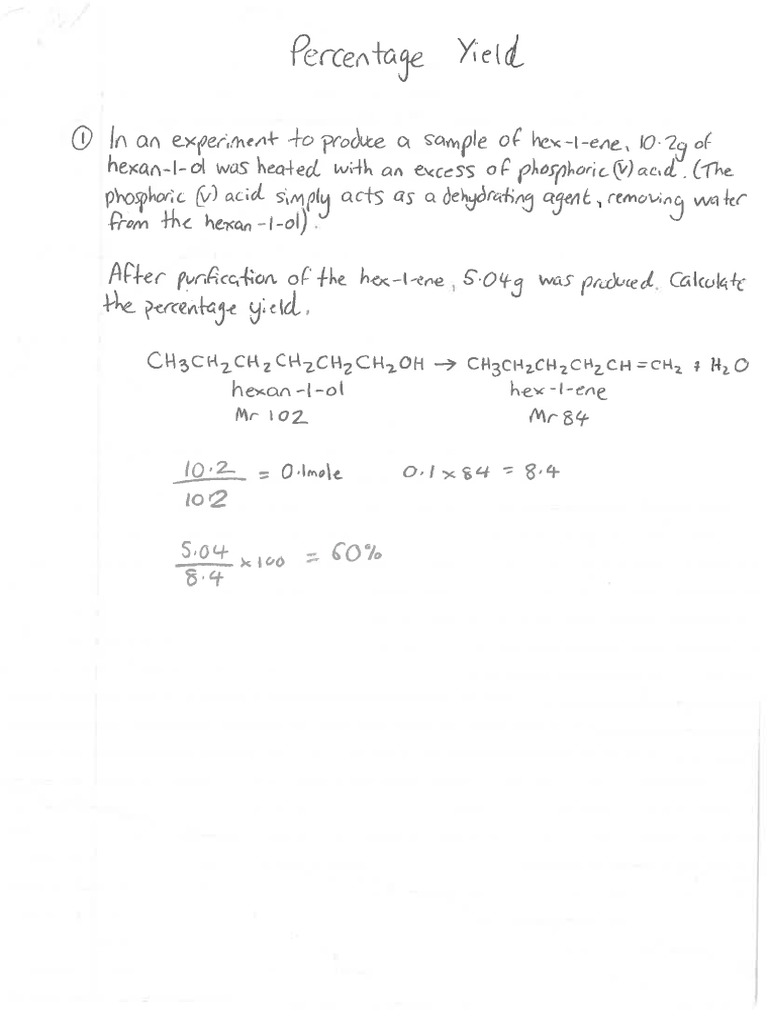 Percentage Yield
① In an experiment to produce a sample of hex-1-ene, 10.2g of
hexan-1-ol was heated with an excess of phosphoric (V) acid. (The
phosphoric (V) acid simply acts as a dehydrating agent, removing water
from the hexan-1-ol).
After purification of the hex-1-ene, 5.04g was produced. Calculate
the percentage yield.
CH3CH2CH2CH2CH2CH2OH → CH3CH2CH2CH2CH=CH2 + H2O
hexan-1-ol hex-1-ene
Mr 102 Mr 84
10.2 / 102 = 0.1mole 0.1 × 84 = 8.4
5.04 / 8.4 × 100 = 60%